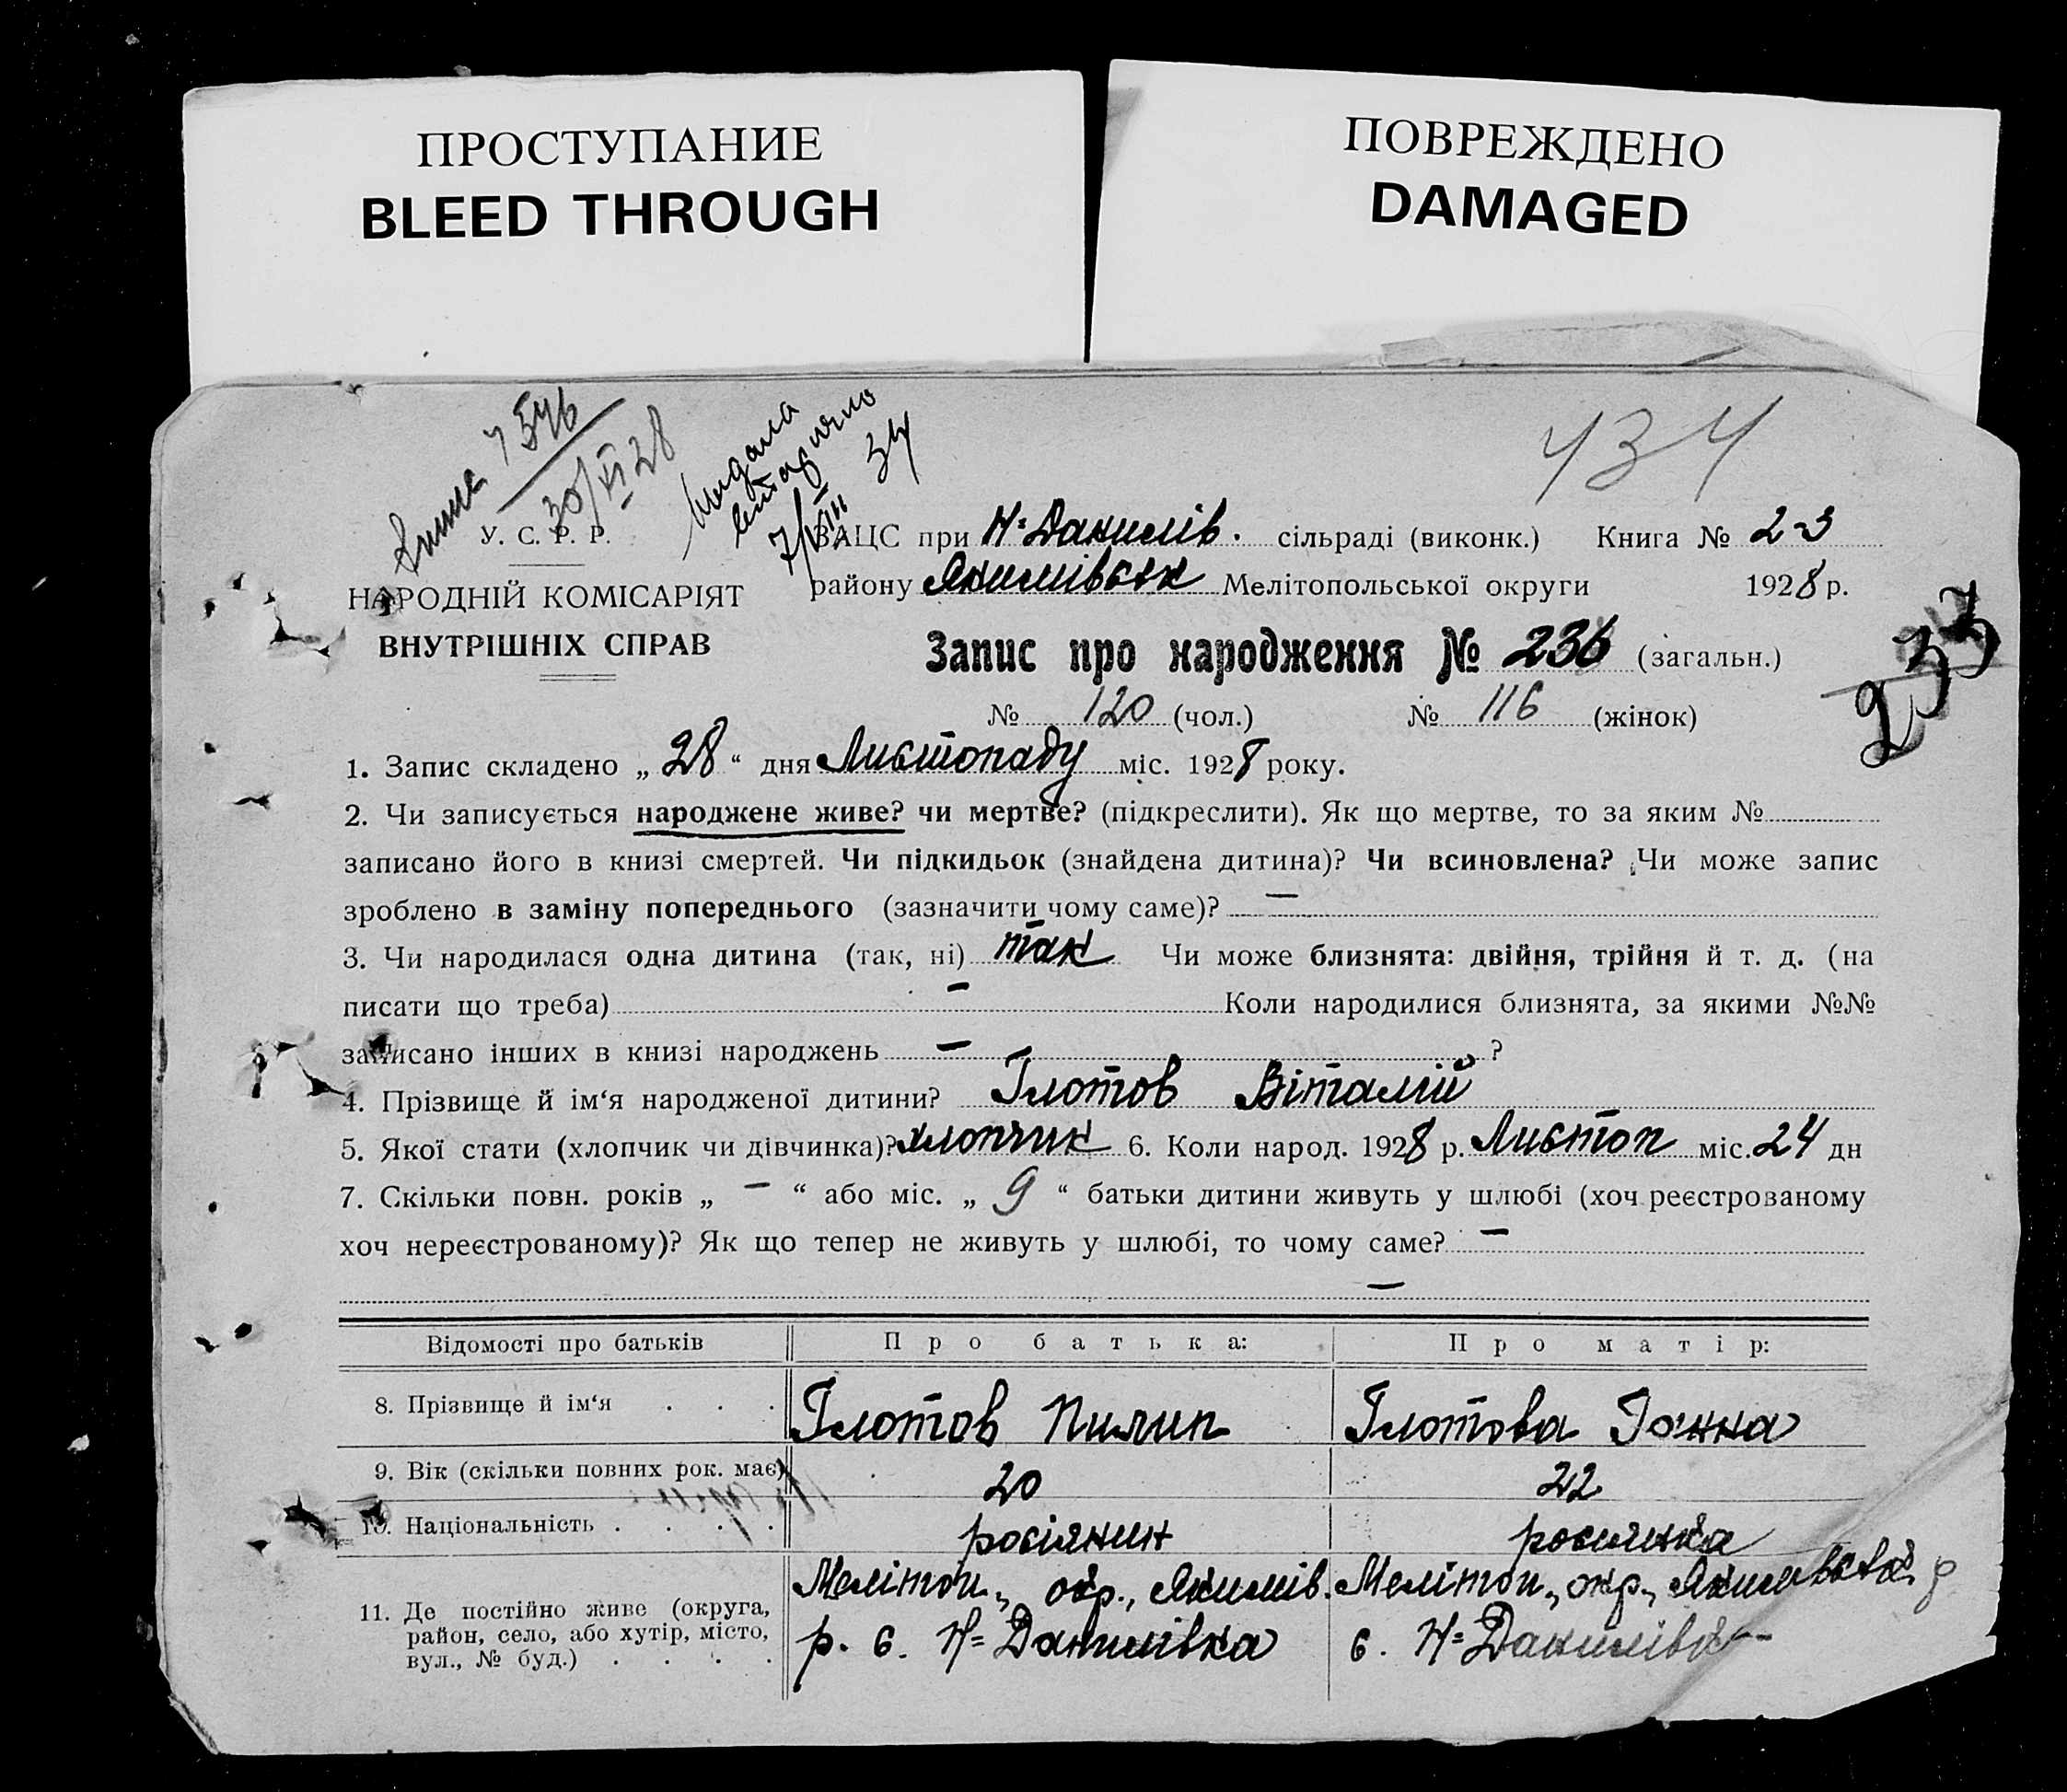 ПРОСТУПАНИЕ
BLEED THROUGH
ПОВРЕЖДЕНО
DAMAGED
7546
30/VI 28
34
434
У. С. Р. Р.
НАРОДНІЙ КОМІСАРІЯТ
ВНУТРІШНІХ СПРАВ
ЗАЦС при Н=Данилів. сільраді (виконк.) Книга № 2-3
району Якимівськ Мелітопольської округи 1928 р.
233
Запис про народження № 236 (загальн.)
№ 120 (чол.) № 116 (жінок)
1. Запис складено „ 28 “ дня Листопаду міс. 1928 року.
2. Чи записується народжене живе? чи мертве? (підкреслити). Як що мертве, то за яким №
записано його в книзі смертей. Чи підкидьок (знайдена дитина)? Чи всиновлена? Чи може запис
зроблено в заміну попереднього (зазначити чому саме)? —
3. Чи народилася одна дитина (так, ні) так Чи може близнята: двійня, трійня й т. д. (на
писати що треба) — Коли народилися близнята, за якими №№
записано інших в книзі народжень — ?
4. Прізвище й ім‘я народженої дитини? Глотов Віталій
5. Якої стати (хлопчик чи дівчинка)? хлопчик 6. Коли народ. 1928 р. Листоп міс. 24 дн
7. Скільки повн. років „ — “ або міс. „ 9 “ батьки дитини живуть у шлюбі (хоч реєстрованому
хоч нереєстрованому)? Як що тепер не живуть у шлюбі, то чому саме? —
—
Відомості про батьків Про батька: Про матір:
8. Прізвище й ім‘я . . . Глотов Пилип Глотова Ганна
9. Вік (скільки повних рок. має) 20 22
10. Національність . . . . росіянин росиянка
11. Де постійно живе (округа, район, село, або хутір, місто, вул., № буд.) . . . .
Мелітоп., окр., Якимів.
р. с. Н=Данилівка
Мелітоп., окр., Якимівськ. р
с. Н=Данилівка